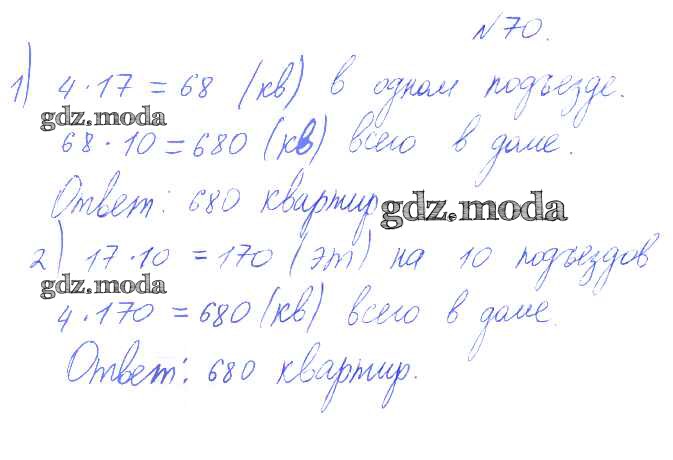 №70.
1) 4·17=68 (кв) в одном подъезде.
gdz.moda
68·10=680 (кв) всего в доме.
Ответ: 680 квартир
gdz.moda
2) 17·10=170 (эт) на 10 подъездов
gdz.moda
4·170=680 (кв) всего в доме.
Ответ: 680 квартир.